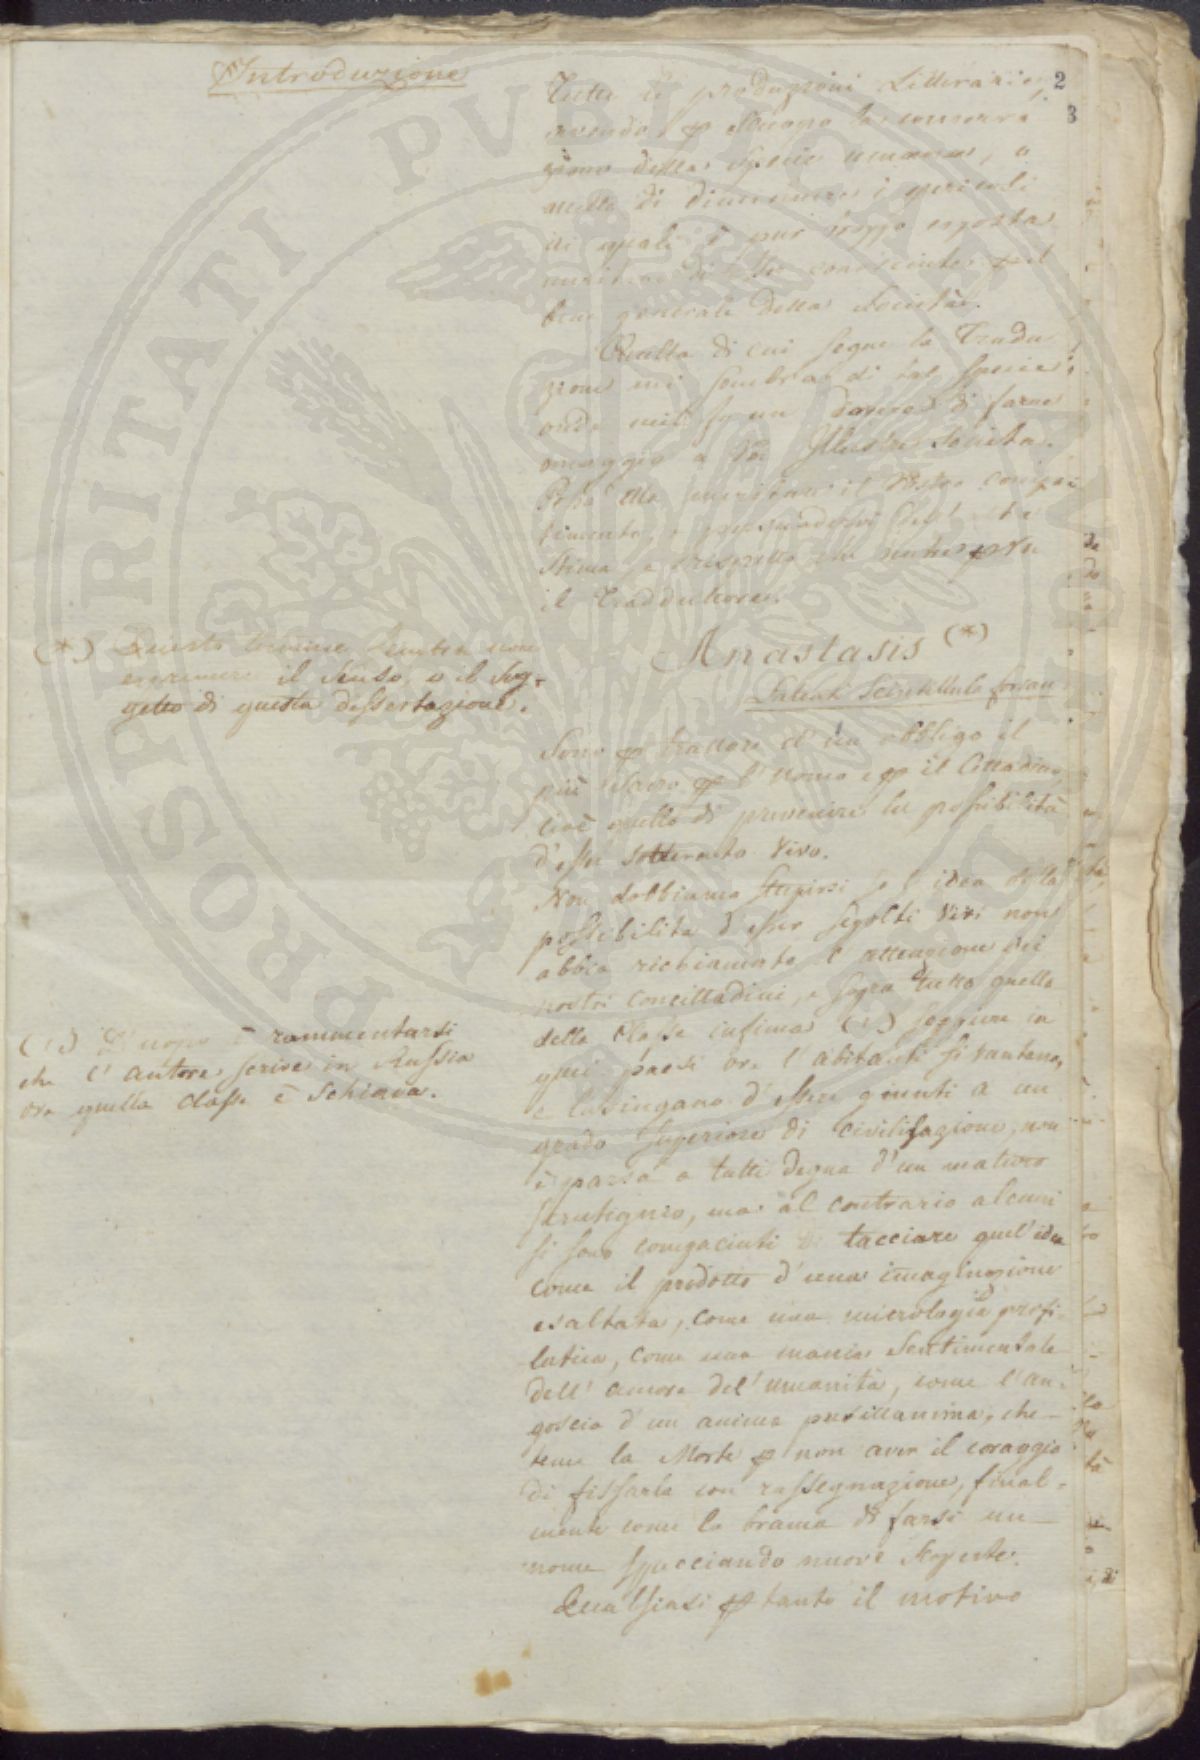 Introduzione
2
3
Tutte le produzioni Litterarie,
avendo per iscopo la conserva
zione della specie umana, o
quello di diminuire i pericoli
ai quali è pur troppo esposta
meritano di esser conosciute pel
bene generale della Società.
Quella di cui segue la Tradu
zione mi sembra di tal specie,
onde mi fo un dovere di farne
omaggio a Voi Illustre Società.
Possa ella meritare il Vostro compa
timento, e persuadervi della
stima e rispetto che nutre per Voi
il Tradduttore.
Anastasis (*)
Lateat Scintillula forsan
(*) Questo termine sembra non
esprimere il senso, o il sog-
getto di questa dissertazione.
Sono per trattare d'un obbligo il
più sacro per l'uomo e per il Cittadino,
cioè quello di prevenire la possibilità
d'esser sotterrato vivo.
Non dobbiamo stupirsi se l'idea della
possibilità d'esser sepolti vivi non
abbia richiamato l'attenzione dei
nostri concittadini, e sopra tutto quella
della classe infima (1) seppure in
quei paesi ove l'abitanti si vantano,
e lusingano d'essere giunti a un
grado superiore di civilisazione, non
è parsa a tutti degna d'un maturo
scrutignio, ma al contrario alcuni
si sono compiaciuti di tacciare quel'idea
come il prodotto d'una imaginazione
esaltata, come una micrologia profi-
latica, come una mania sentimentale
dell'amore del'umanità, come l'an-
goscia d'un anima pusillanima, che
teme la Morte per non aver il coraggio
di fissarla con rassegnazione, final-
mente come la brama di farsi un
nome spacciando nuove scoperte.
Qualsiasi per tanto il motivo
(1) D'uopo è rammentarsi
che l'autore scrive in Russia
ove quella classe è schiava.
PROSPERITATI PUBLICAE AUGENDAE